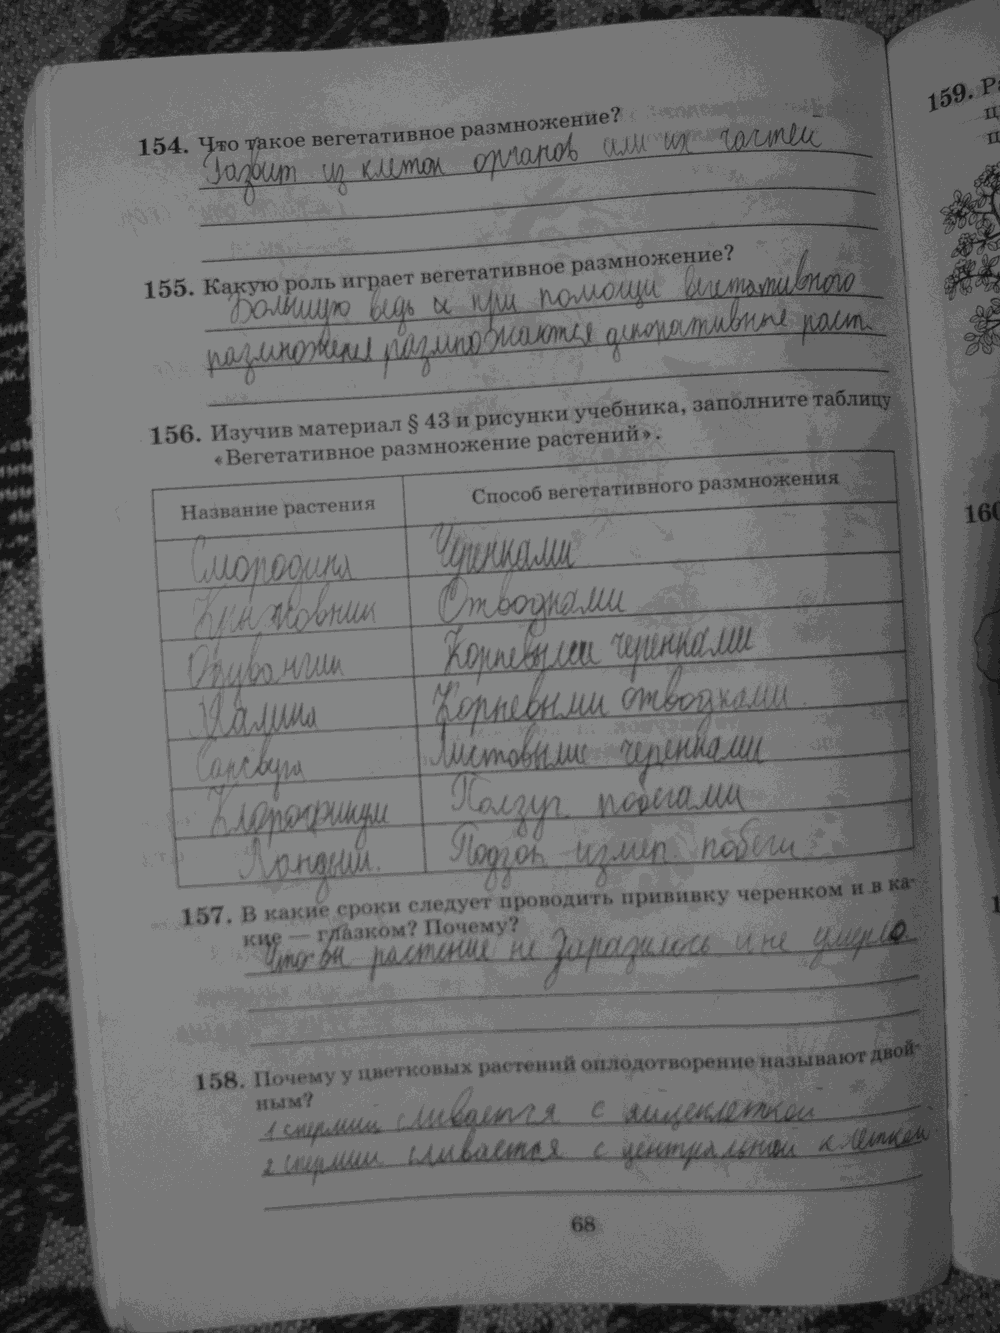 154. Что такое вегетативное размножение?
Развит из клеток органов или их частей
155. Какую роль играет вегетативное размножение?
Большую ведь и при помощи вегетативного
размножения размножаются декоративные раст.
156. Изучив материал § 43 и рисунки учебника, заполните таблицу
«Вегетативное размножение растений».
Название растения Способ вегетативного размножения
Смородина Черенками
Крыжовник Отводками
Одуванчик Корневыми черенками
Малина Корневыми отводками
Листовыми черенками
Хлорофитум Ползуч. побегами
Ландыш. Подзем измен. побеги
157. В какие сроки следует проводить прививку черенком и в ка-
кие — глазком? Почему?
Чтобы растение не заразилось и не умерло
158. Почему у цветковых растений оплодотворение называют двой-
ным?
1 спермий сливается с яйцеклеткой
2 спермий сливается с центральной клеткой
68
159. Ра
ц
160
1